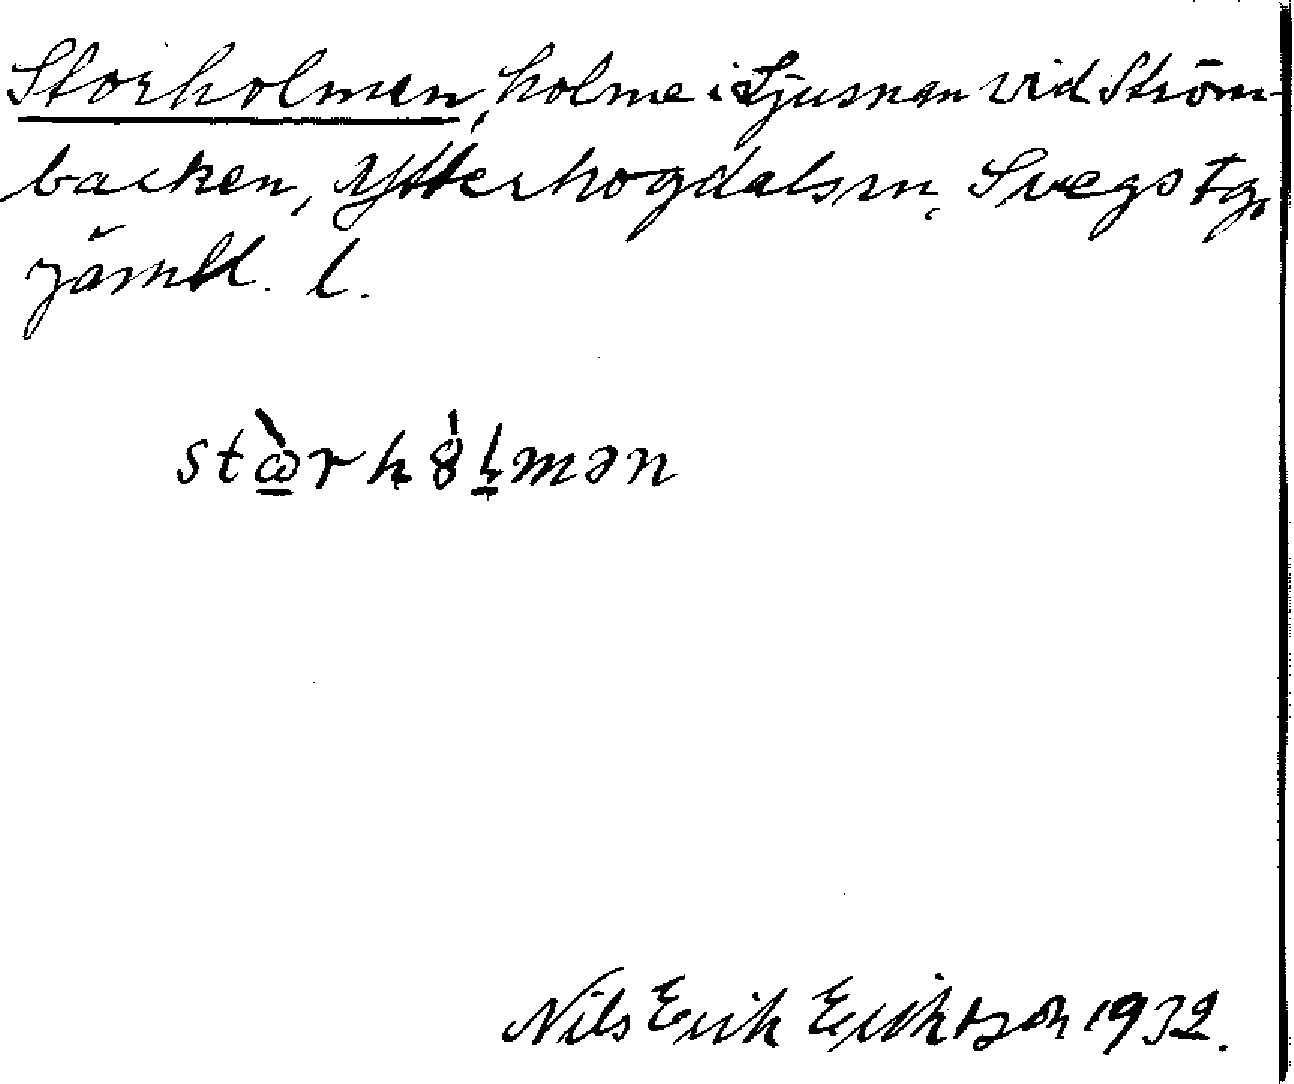 Storholmen, holme i Ljusnan vid Ström-
backen, Ytterhogdals sn, Svegs tg,
Jämtl. l.
Nils Erik Eriksson 1932.